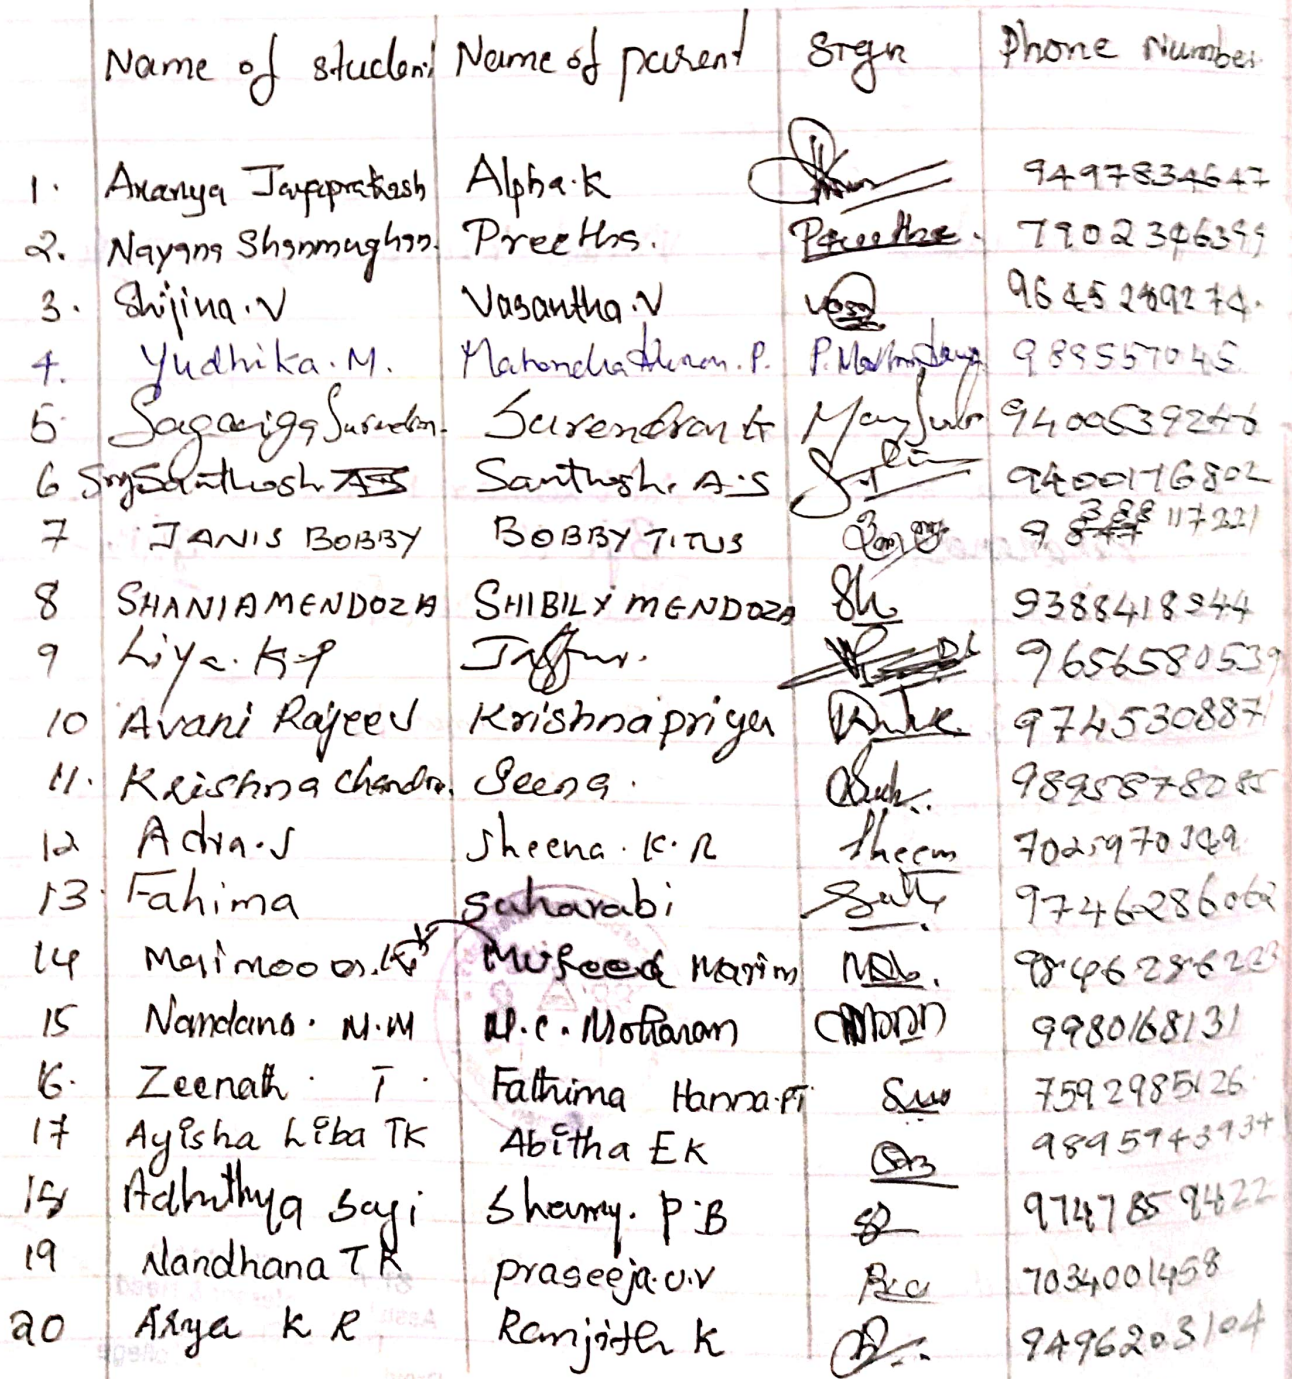 Name of student Name of parent Sign Phone Number
1. Ananya Jayaprakash Alpha.K 9497834647
2. Nayana Shanmughan. Preetha. Preetha. 7902346399
3. Shijina.V Vasantha.V 9645289274.
4. Yudhika.M. 989557045
5. Surendran 9400539266
6 Santhosh Santhosh. A.S 9400176802
7 JANIS BOBBY BOBBY TITUS 9 388 117221
8 SHANIA MENDOZA SHIBILY MENDOZA Sh 9388418944
9 Liya. K.P 9656580539
10 Avani Rajeev Krishnapriya 9745308871
11. Krishna Chandra. Seena. 9895878085
12 Adra.S Sheena. K.R Sheena 7025970369
13. Fahima Saharabi 9746286062
14 Maimoona.K Mufeeda Marim 9846286223
15 Nandana. M.M M.C. Mohanan 9980168131
16. Zeenath. T. Fathima Hanna.PT 7592985126
17 Ayisha Liba TK Abitha EK 9895943934
18 Adhithya Sagi Shamy. P.B 9747859422
19 Nandhana T K Praseeja.U.V 7034001458
20 Arya K R Ramjith K 9496203104